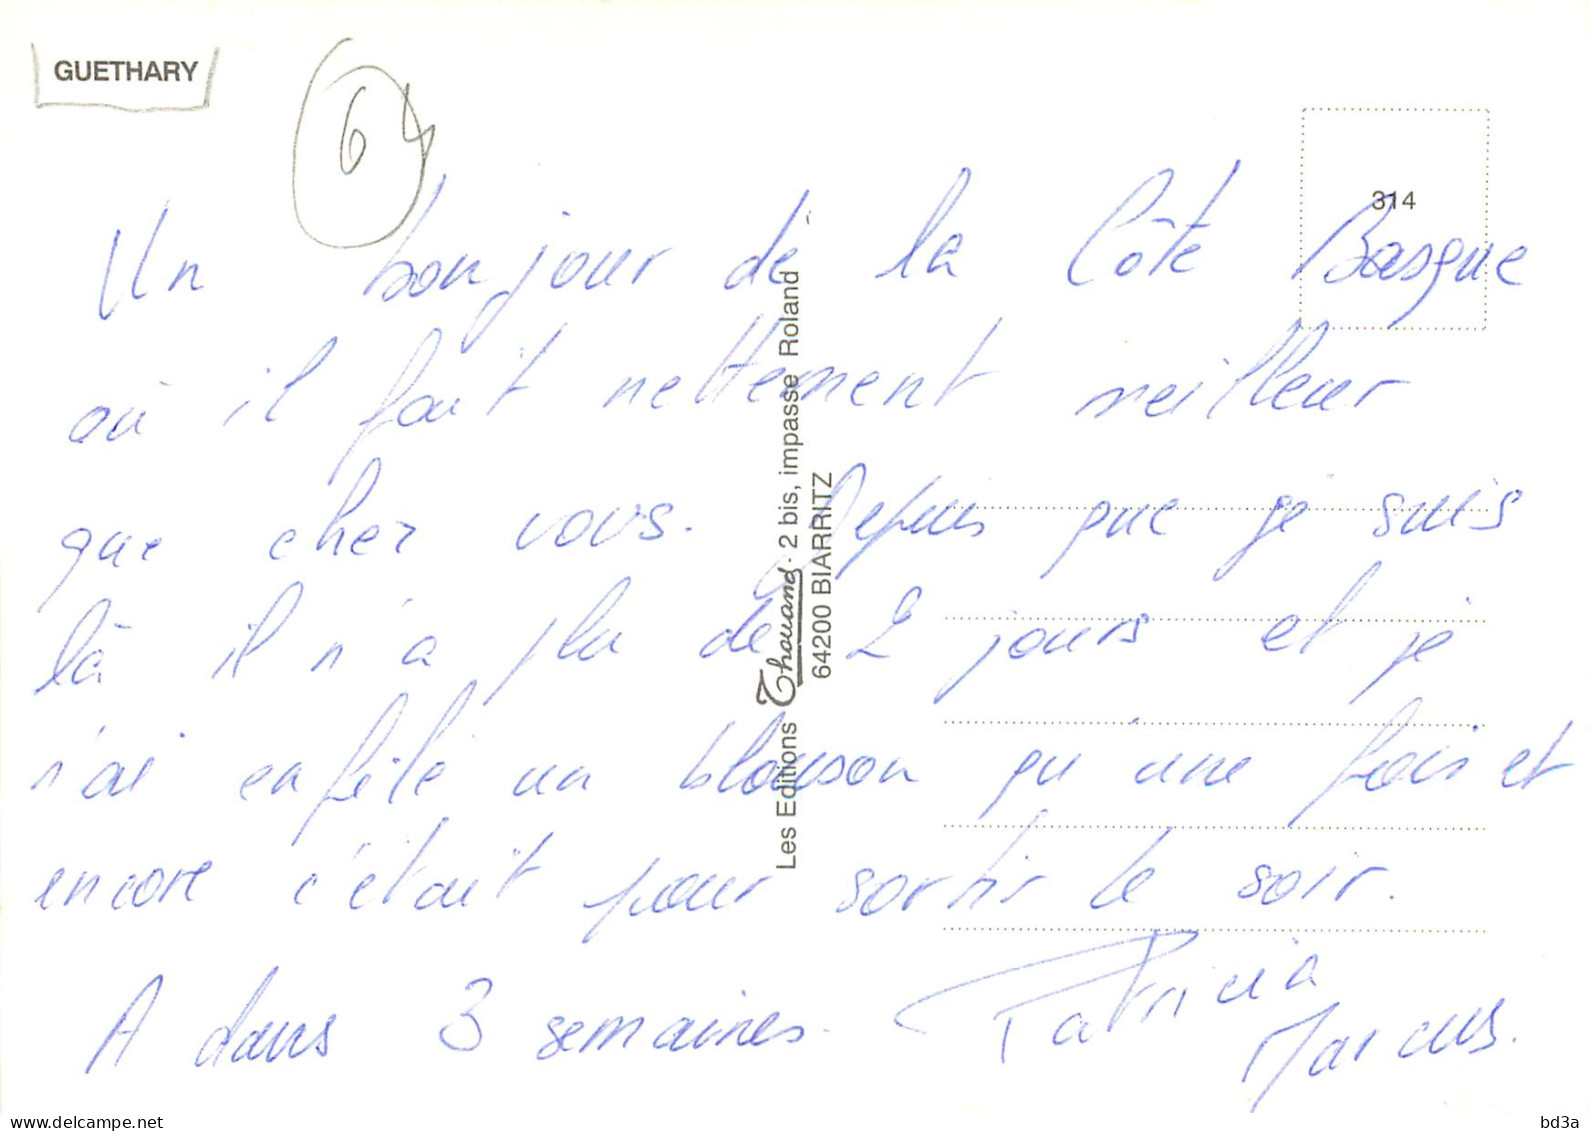 GUETHARY
64
314
Un bonjour de la Côte Basque
où il fait nettement meilleur
que chez vous. Depuis que je suis
là il n'a plu de 2 jours et je
n'ai enfilé un blouson qu'une fois et
encore c'était pour sortir le soir.
A dans 3 semaines.
Patricia
Marcus.
Les Editions Thouand - 2 bis, impasse Roland
64200 BIARRITZ
www.delcampe.net
bd3a